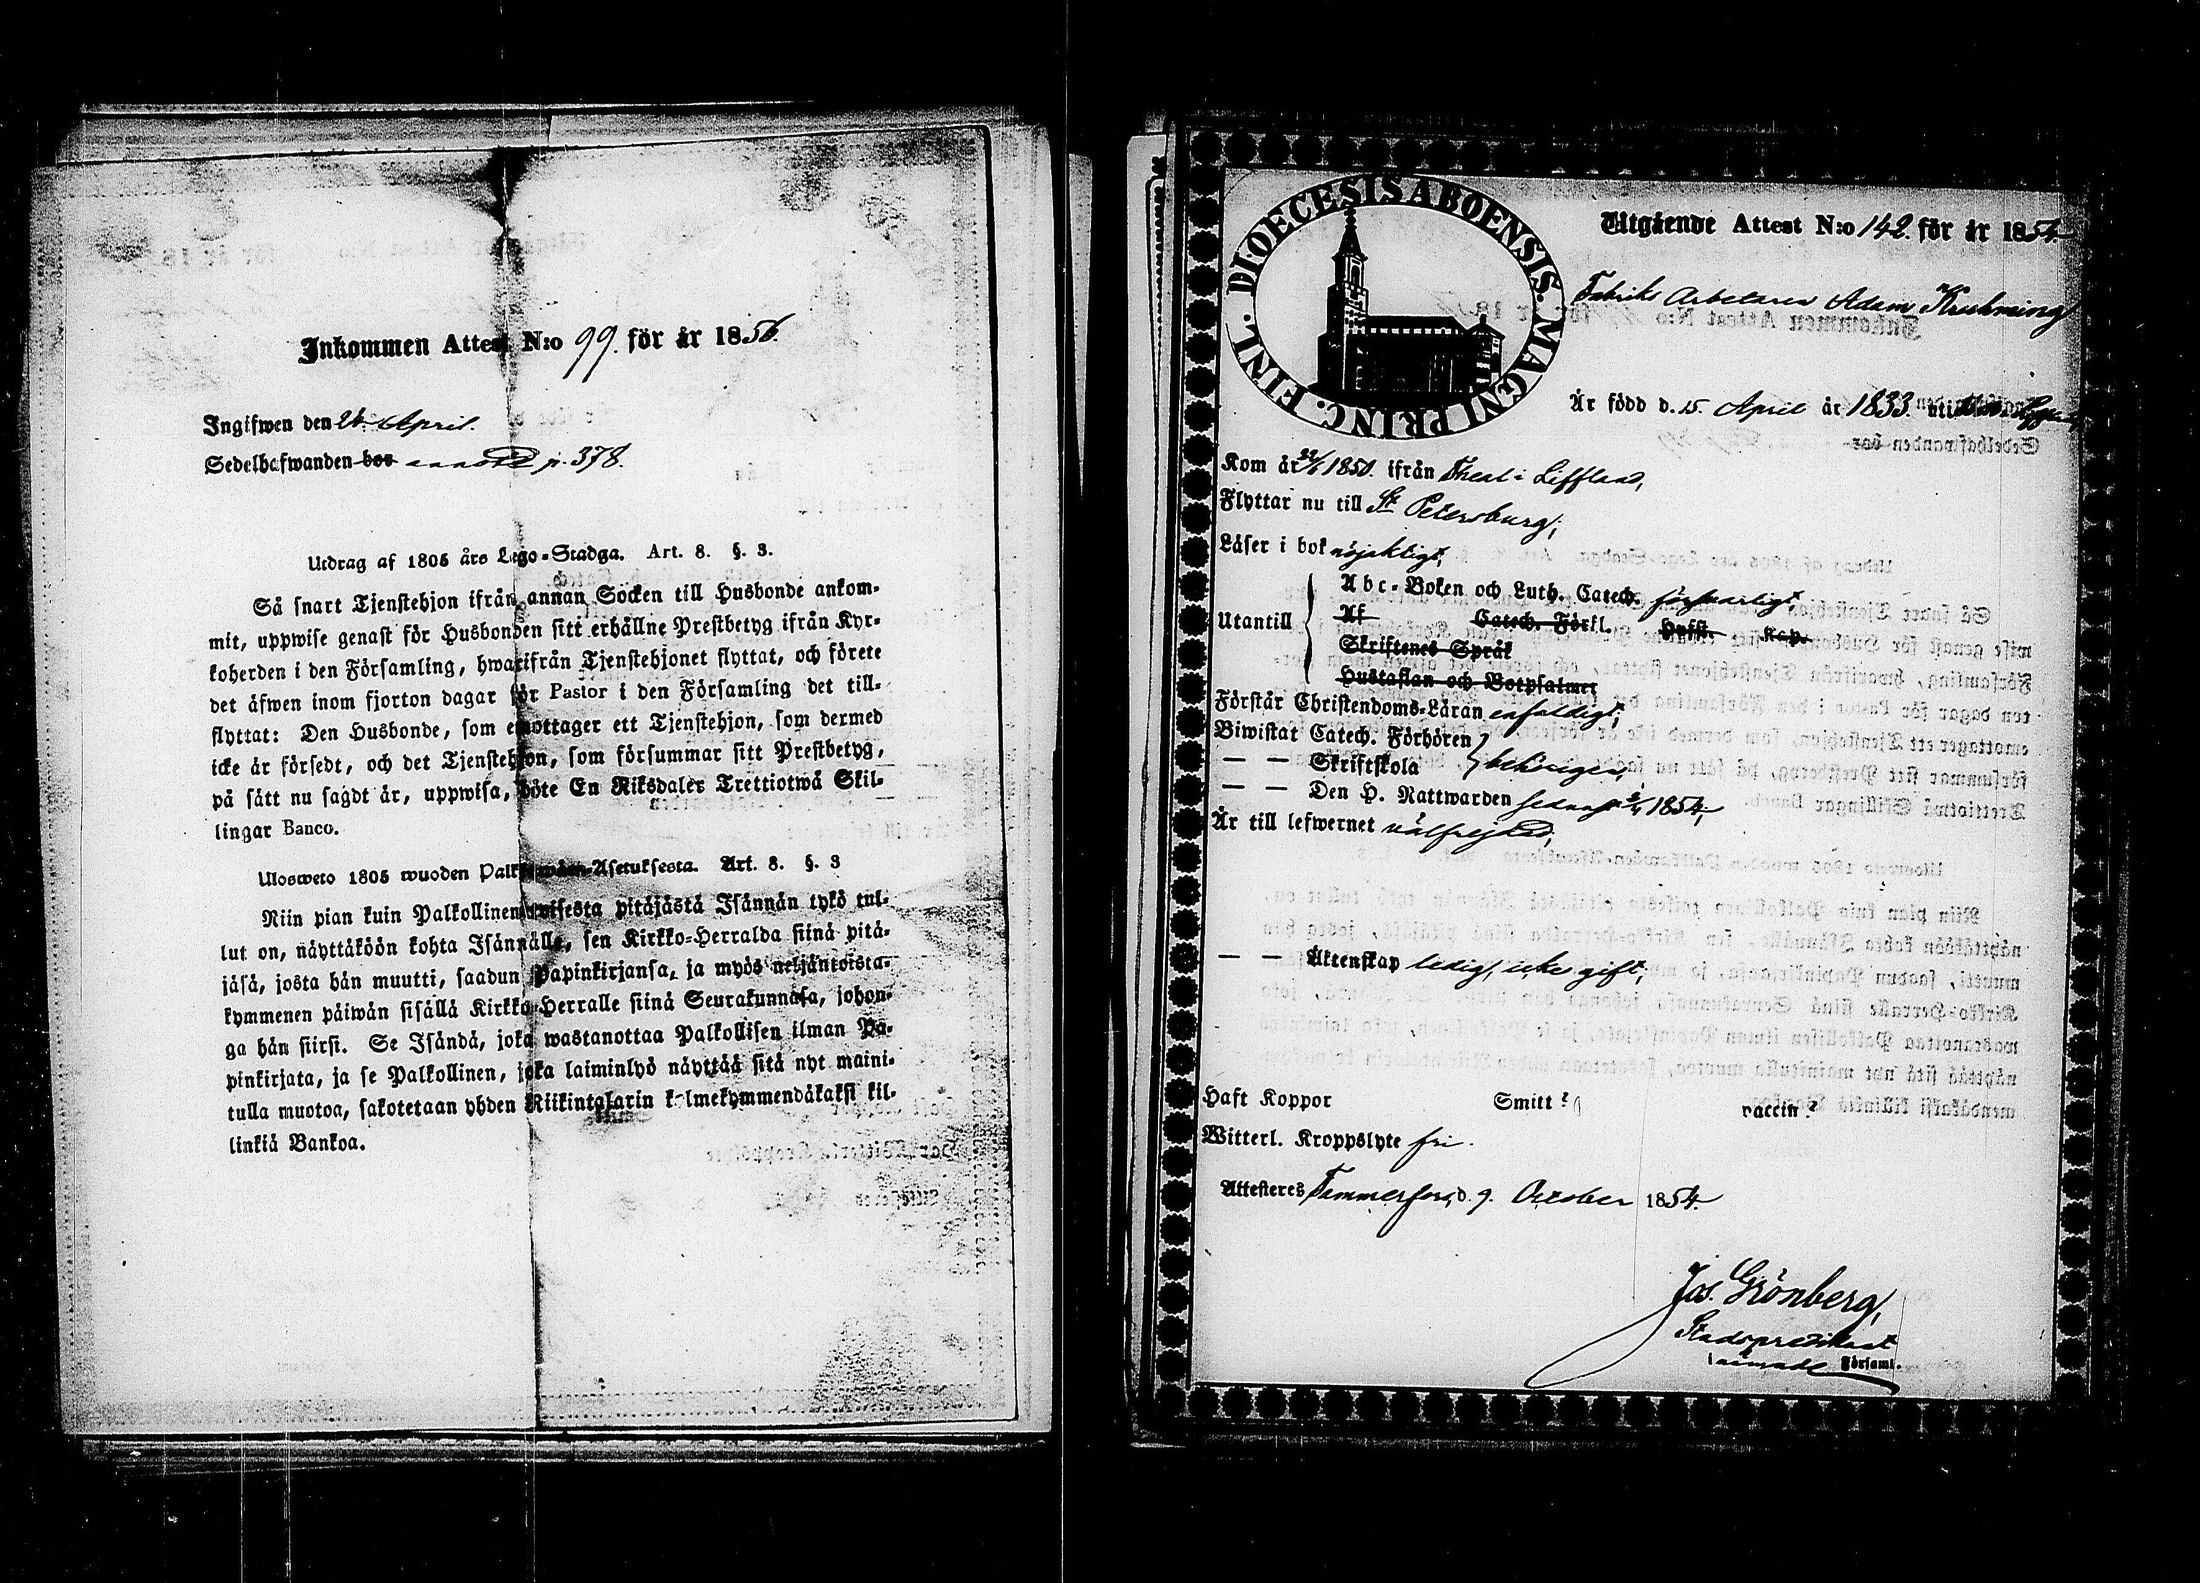 Inkommen Attest N:o 99. för år 1856.
Ingifwen den 24 April.
Sedelhafwanden bos annot p. 378.
Utdrag af 1805 års Lego-Stadga. Art. 8. §. 3.
Så snart Tjenstehjon ifrån annan Socken till Husbonde ankom-
mit, uppwise genast för Husbonden sitt erhållne Prestbetyg ifrån Kyr-
koherden i den Församling, hwarifrån Tjenstehjonet flyttat, och förete
det äfwen inom fjorton dagar för Pastor i den Församling det till-
flyttat: Den Husbonde, som emottager ett Tjenstehjon, som dermed
icke är försedt, och det Tjenstehjon, som försummar sitt Prestbetyg,
på sätt nu sagdt är, uppwisa, böte En Riksdaler Trettiotwå Skil-
lingar Banco.
Ulosweto 1805 wuoden Palkkawäen-Asetuksesta. Art. 8. §. 3
Niin pian kuin Palkollinen toisesta pitäjästä Isännän tykö tul-
lut on, näyttäköön kohta Isännälle, sen Kirkko-Herralda siinä pitä-
jäsä, josta hän muutti, saadun Papinkirjansa, ja myös neljäntoista-
kymmenen päiwän sisällä Kirkko-Herralle siinä Seurakunnasa, johon-
ga hän siirsi. Se Isändä, joka wastanottaa Palkollisen ilman Pa-
pinkirjata, ja se Palkollinen, joka laiminlyö näyttää sitä nyt maini-
tulla muotoa, sakotetaan yhden Riikintalarin kolmekymmendäkaksi kil-
linkiä Bankoa.
DIOECESIS ABOENSIS. MAGNI PRINC. FINL.
Utgående Attest N:o 142. för år 1854.
Fabriks Arbetaren Adam Kruhming
Är född d. 15. April år 1833. uti
Kom år 22/6 1850. ifrån Theal i Liffland,
Flyttar nu till St Petersburg;
Läser i bok nöjaktigt,
Utantill Abc-Boken och Luth. Catech. försvarligt,
Af Catech. Förkl. Hufst. Kap.
Skriftenes Språk
Hustaflan och Botpsalmer
Förstår Christendoms-Läran enfaldigt;
Biwistat Catech. Förhören
— — Skriftskola behörigen,
— — Den H. Nattwarden sednast 1854;
Är till lefwernet välfrejdad;
— — Äktenskap ledig, icke gift;
Haft Koppor Smitt? vaccin?
Witterl. Kroppslyte fri.
Attesteres Tammerfors, d. 9. October 1854.
Jos. Grönberg,
Stadspredikant
i nämnde Församl.